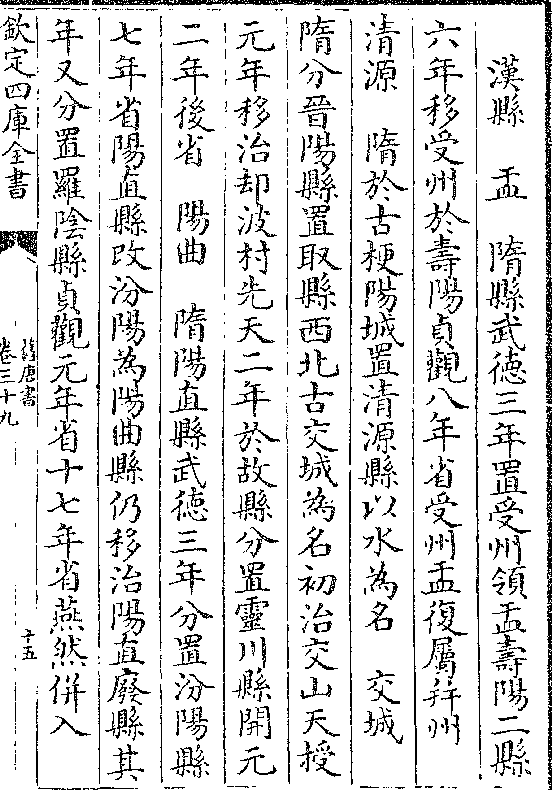 漢縣　盂　隋縣武德三年置受州領盂壽陽二縣
六年移受州於壽陽貞觀八年省受州盂復屬并州
清源　隋於古梗陽城置清源縣以水為名　交城
隋分晉陽縣置取縣西北古交城為名初治交山天授
元年移治却波村先天二年於故縣分置靈川縣開元
二年後省　陽曲　隋陽直縣武德三年分置汾陽縣
七年省陽直縣改汾陽為陽曲縣仍移治陽直廢縣其
年又分置羅陰縣貞觀元年省十七年省燕然併入
欽定四庫全書
舊唐書
卷三十九
十五